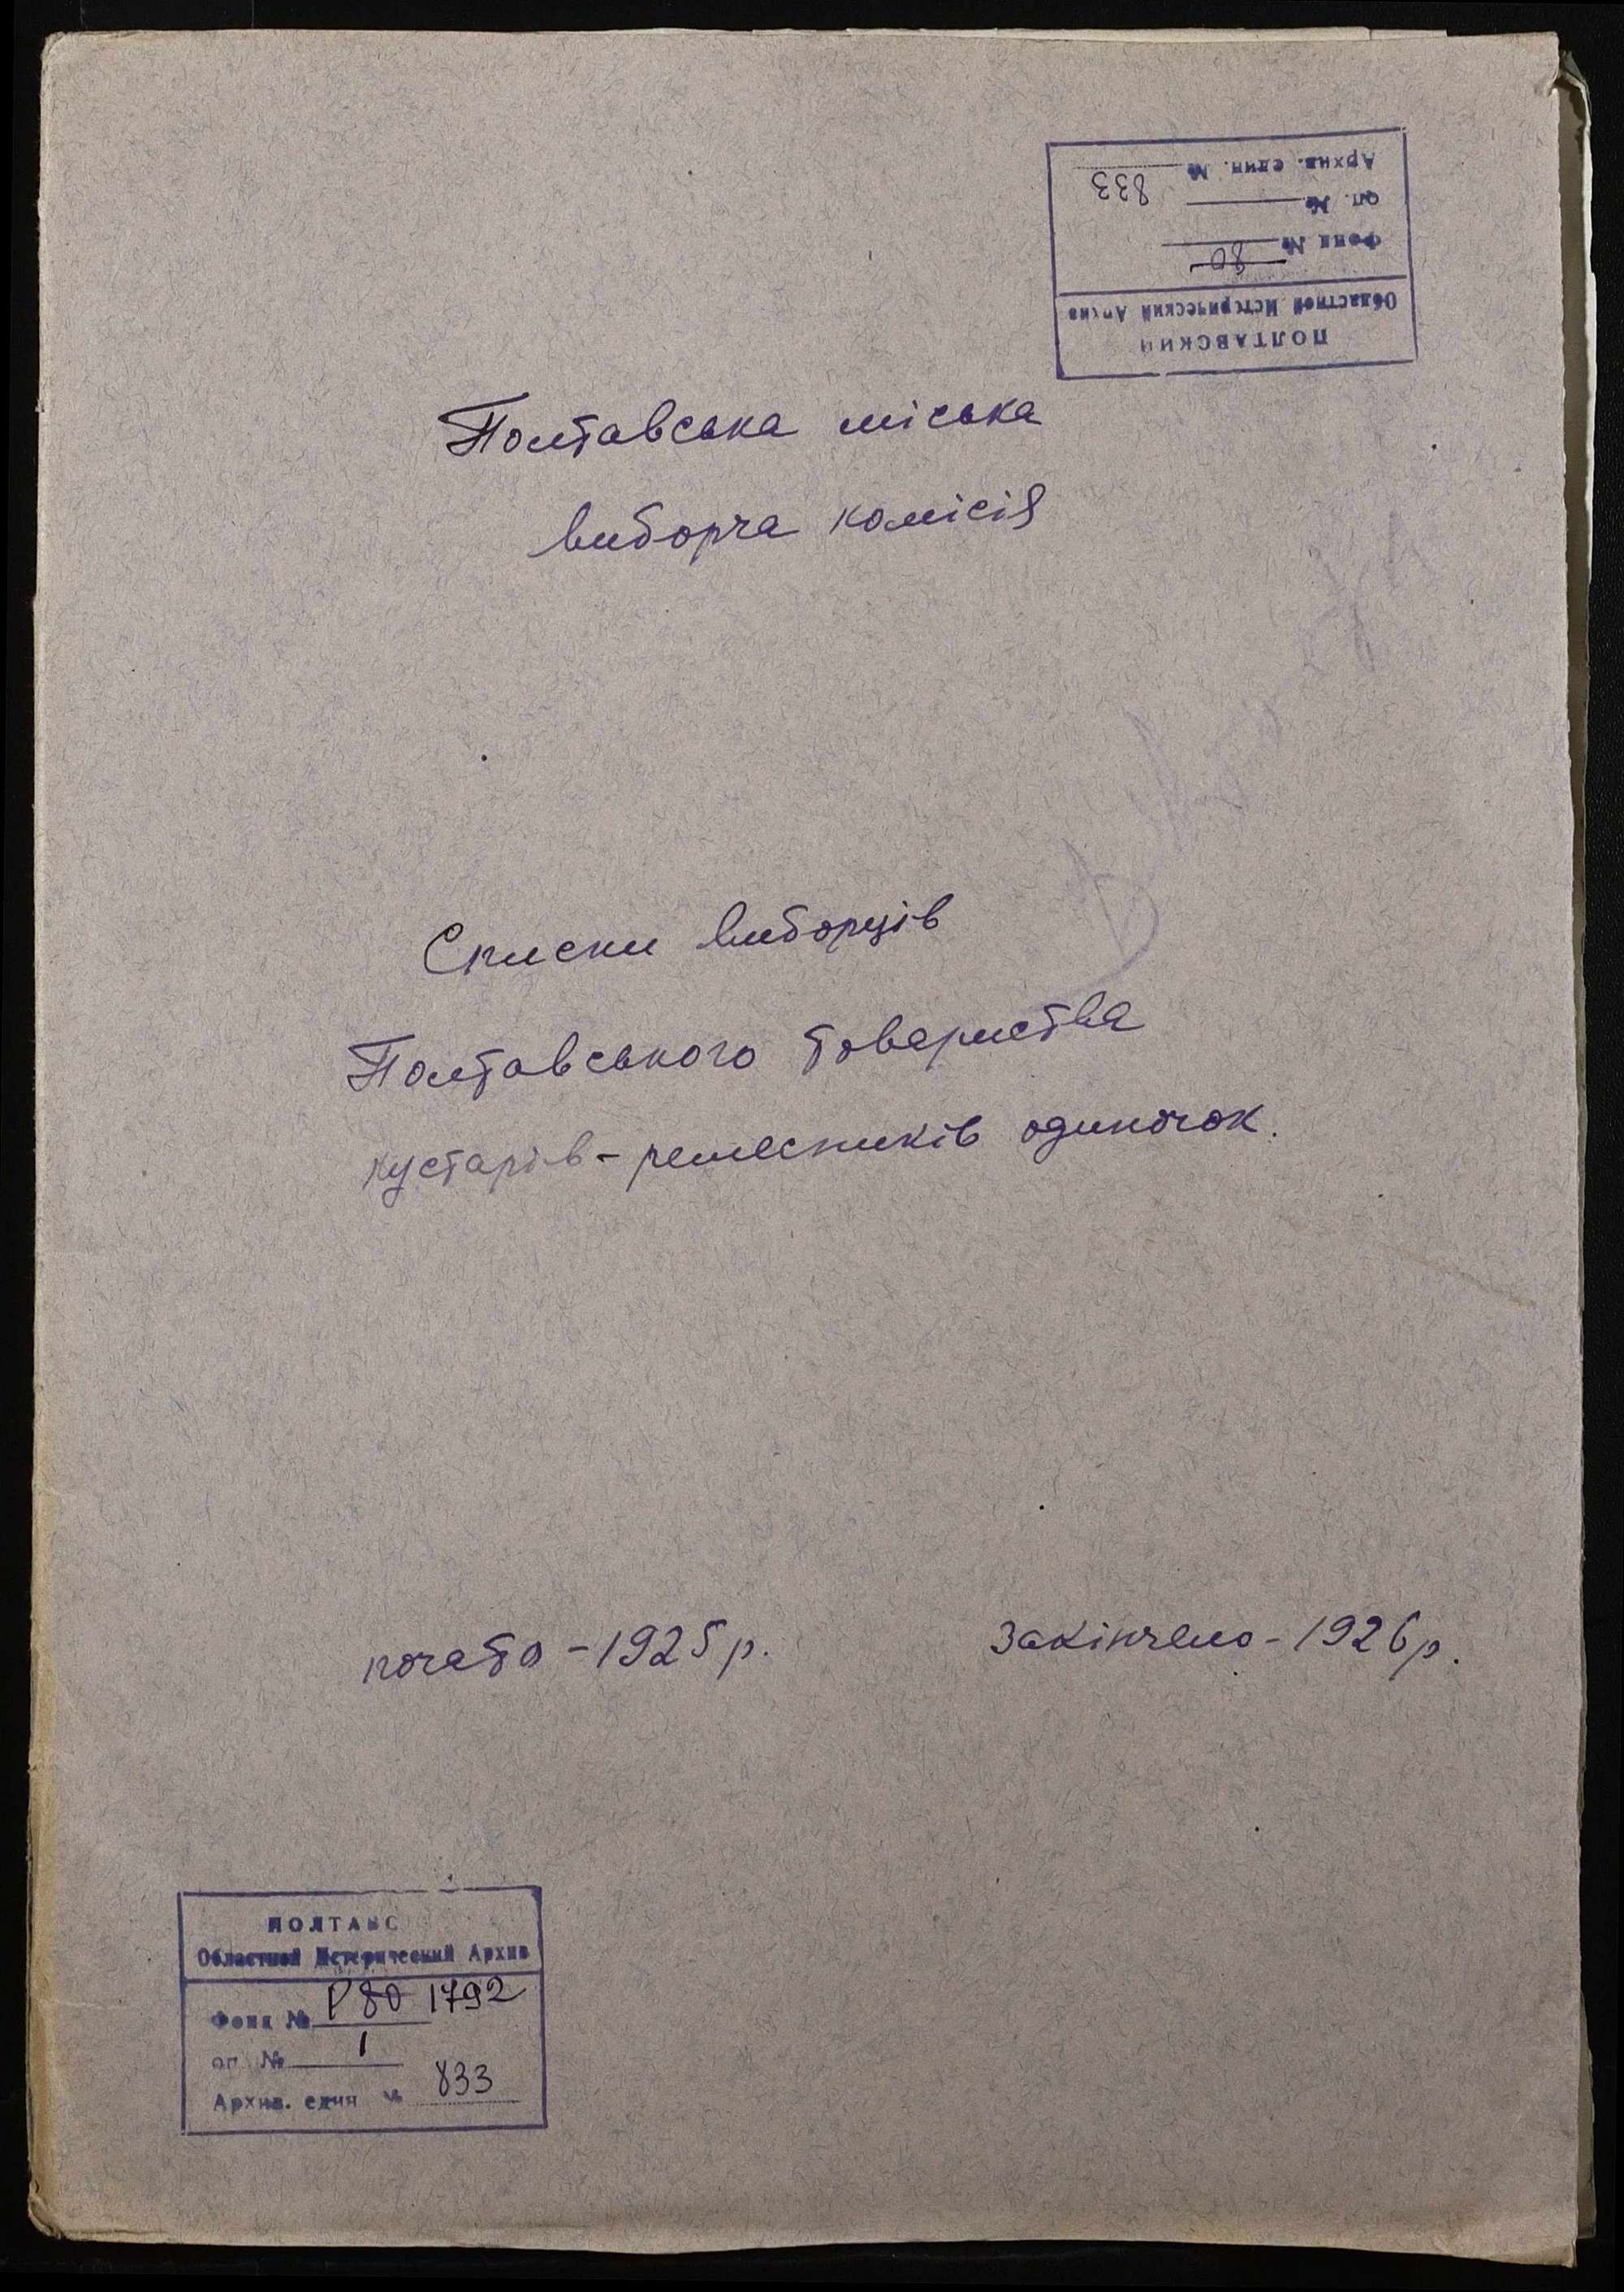 Архив. един. № 833
оп. №
Фонд № 80
Областной Исторический Архив
ПОЛТАВСКИЙ
Полтавська міська
виборча комісія
Списки виборців
Полтавського товариства
кустарів-ремесників одиночок.
почато - 1925 р.
закінчено - 1926 р.
ПОЛТАВС
Областной Исторический Архив
Фонд № Р 80 1792
оп. № 1
Архив. един № 833